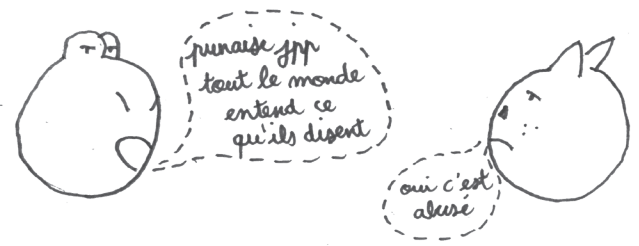 punaise jpp
tout le monde
entend ce
qu'ils disent
oui c'est
abusé